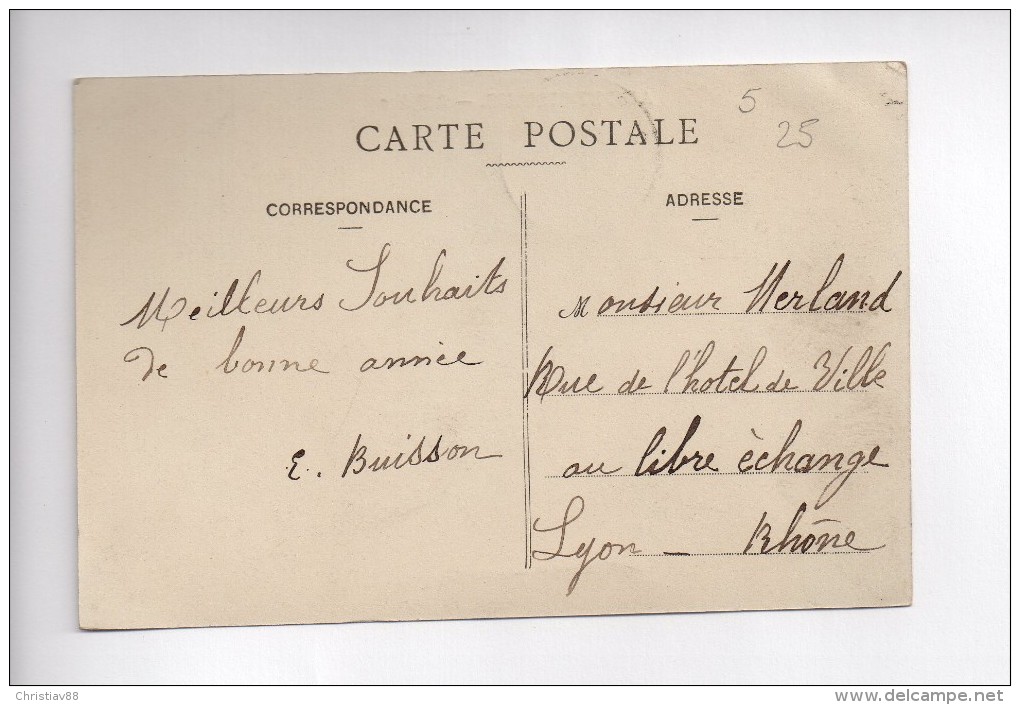 5
25
CARTE POSTALE
CORRESPONDANCE
ADRESSE
Meilleurs Souhaits
de bonne année
E. Buisson
Monsieur Merland
Rue de l'hotel de Ville
au libre èchange
Lyon - Rhône
Christiav88
www.delcampe.net